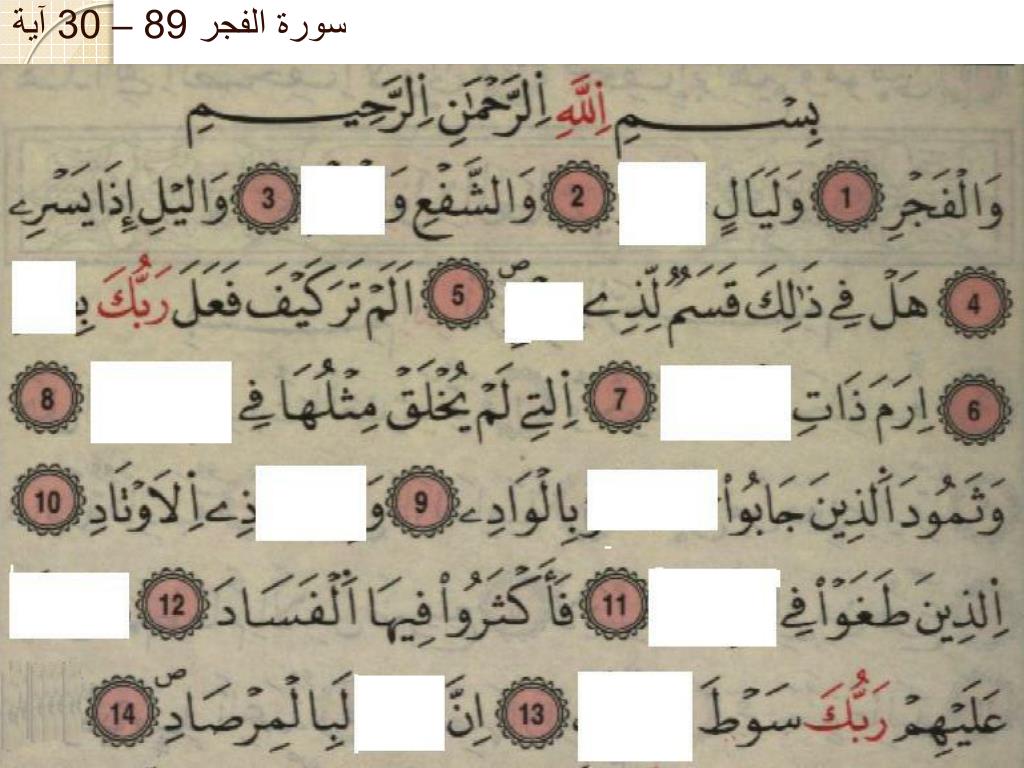 سورة الفجر 89 – 30 آية
بِسْمِ اِللَّهِ اِلرَّحْمَٰنِ اِلرَّحِيمِ
وَالْفَجْرِ 1 وَلَيَالٍ 2 وَالشَّفْعِ وَ 3 وَاليْلِ إِذَا يَسْرِے
4 هَلْ فِے ذَٰلِكَ قَسَمٌ لِّذِے 5 اَلَمْ تَرَ كَيْفَ فَعَلَ رَبُّكَ بِ
6 اِرَمَ ذَاتِ 7 اِلتِے لَمْ يُخْلَقْ مِثْلُهَا فِے 8
وَثَمُودَ اَلذِينَ جَابُواْ بِالْوَادِے 9 وَ ذِے اِلَاوْتَادِ 10
اِلذِينَ طَغَوْاْ فِے 11 فَأَكْثَرُواْ فِيهَا اَلْفَسَادَ 12
عَلَيْهِمْ رَبُّكَ سَوْطَ 13 اِنَّ لَبِالْمِرْصَادِ 14